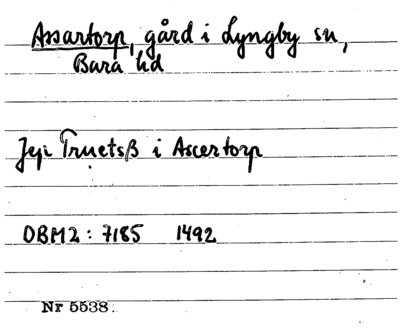 Assartorp, gård i Lyngby sn,
Bara hd
Jep Truetsß i Ascertorp
DBM2: 7185 1492
Nr 5538.